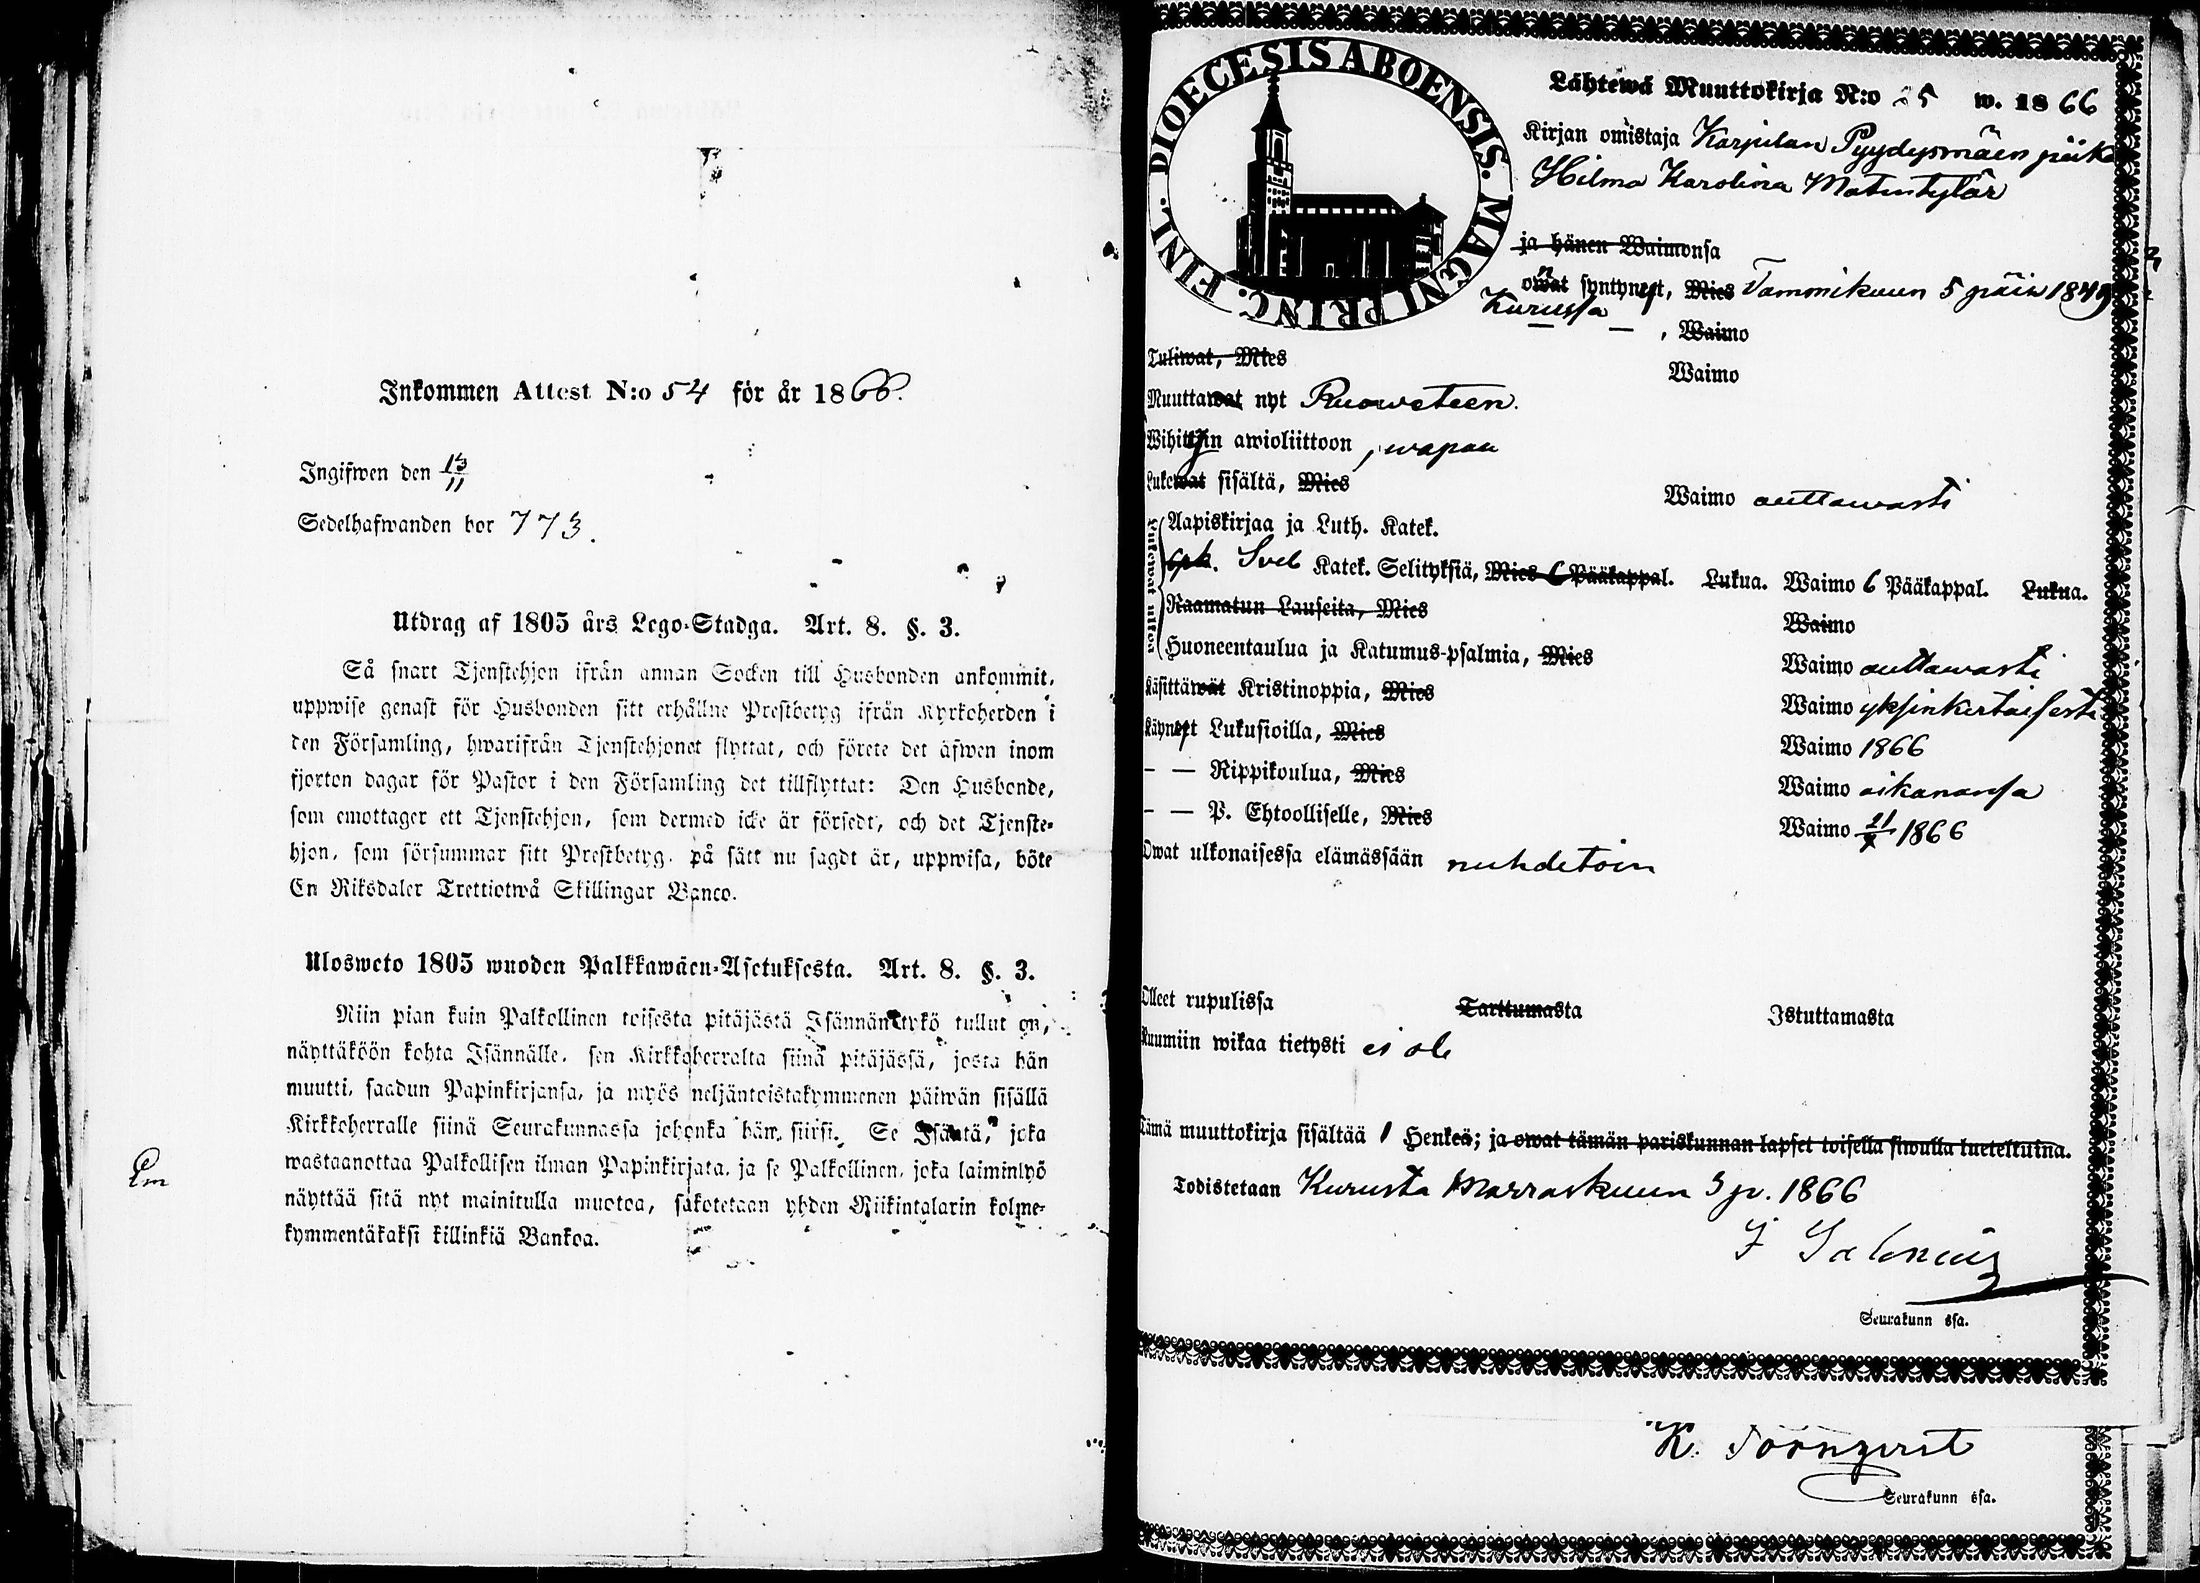 Inkommen Attest N:o 54 för år 1866.
Ingifwen den 13/11
Sedelhafwanden bor 773.
Utdrag af 1805 års Lego-Stadga. Art. 8. §. 3.
Så snart Tjenstehjon ifrån annan Socken till Husbonden ankommit,
uppwise genast för Husbonden sitt erhållne Prestbetyg ifrån Kyrkoherden i
den Församling, hwarifrån Tjenstehjonet flyttat, och förete det äfwen inom
fjorton dagar för Pastor i den Församling det tillflyttat: Den Husbonde,
som emottager ett Tjenstehjon, som dermed icke är försedt, och det Tjenste-
hjon, som försummar sitt Prestbetyg, på sätt nu sagdt är, uppwisa, böte
En Riksdaler Trettiotwå Skillingar Banco.
Ulosweto 1805 wuoden Palkkawäen-Asetuksesta. Art. 8. §. 3.
Niin pian kuin Palkollinen toisesta pitäjästä Isännän tykö tullut on,
näyttäköön kohta Isännälle, sen Kirkkoherralta siinä pitäjässä, josta hän
muutti, saadun Papinkirjansa, ja myös neljäntoistakymmenen päiwän sisällä
Kirkkoherralle siinä Seurakunnassa johonka hän siirsi. Se Isäntä, joka
wastaanottaa Palkollisen ilman Papinkirjata, ja se Palkollinen, joka laiminlyö
näyttää sitä nyt mainitulla muotoa, sakotetaan yhden Riikintalarin kolme-
kymmentäkaksi killinkiä Bankoa.
DIOECESIS ABOENSIS. MAGNI PRINC. FINL.
Lähtewä Muuttokirja N:o 25 w. 1866
Kirjan omistaja Karjulan Pyydysmäen piika
Hilma Karolina Matintytär
ja hänen Waimonsa
owat syntynyt, Mies Tammikuun 5 päiw 1849
Kurussa — — , Waimo
Tuliwat, Mies Waimo
Muuttawat nyt Ruoweteen.
Wihitty in awioliittoon , wapaa
Lukewat sisältä, Mies Waimo auttawasti
Lukewat ulkoa
Aapiskirjaa ja Luth. Katek.
Sveb Katek. Selityksiä, Mies 6 Pääkappal. Lukua. Waimo 6 Pääkappal. Lukua.
Raamatun Lauseita, Mies Waimo
Huoneentaulua ja Katumus-psalmia, Mies Waimo auttawasti
Käsittäwät Kristinoppia, Mies Waimo yksinkertaisesti
Käynyt Lukusioilla, Mies Waimo 1866
— — Rippikoulua, Mies Waimo aikanansa
— — P. Ehtoolliselle, Mies Waimo 21/ 1866
Owat ulkonaisessa elämässään nuhdetoin
Olleet rupulissa Tarttumasta Istuttamasta
Ruumiin wikaa tietysti ei ole
Tämä muuttokirja sisältää 1 Henkeä; ja owat tämän pariskunnan lapset toisella siwulla lueteltuina.
Todistetaan Kurusta Marraskuun 3 p. 1866
F Salenius
Seurakunn ssa.
K. Törnqvist
Seurakunn ssa.